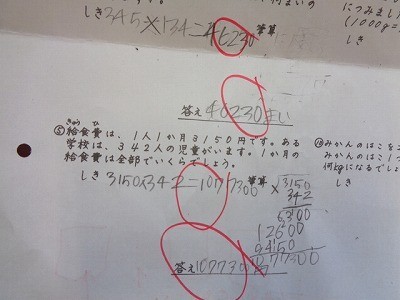 につみまし
(1000g=
しき
しき345×134=46230 筆算
答え46230まい
きゅう ひ
⑤給食費は、1人1か月3150円です。ある
学校は、342人の児童がいます。1か月の
給食費は全部でいくらでしょう。
しき3150×342=1077300 筆算
3150
× 342
6300
12600
9450
1077300
答え
みかんのはこ
みかんのはこは1
何kgになるでし
しき